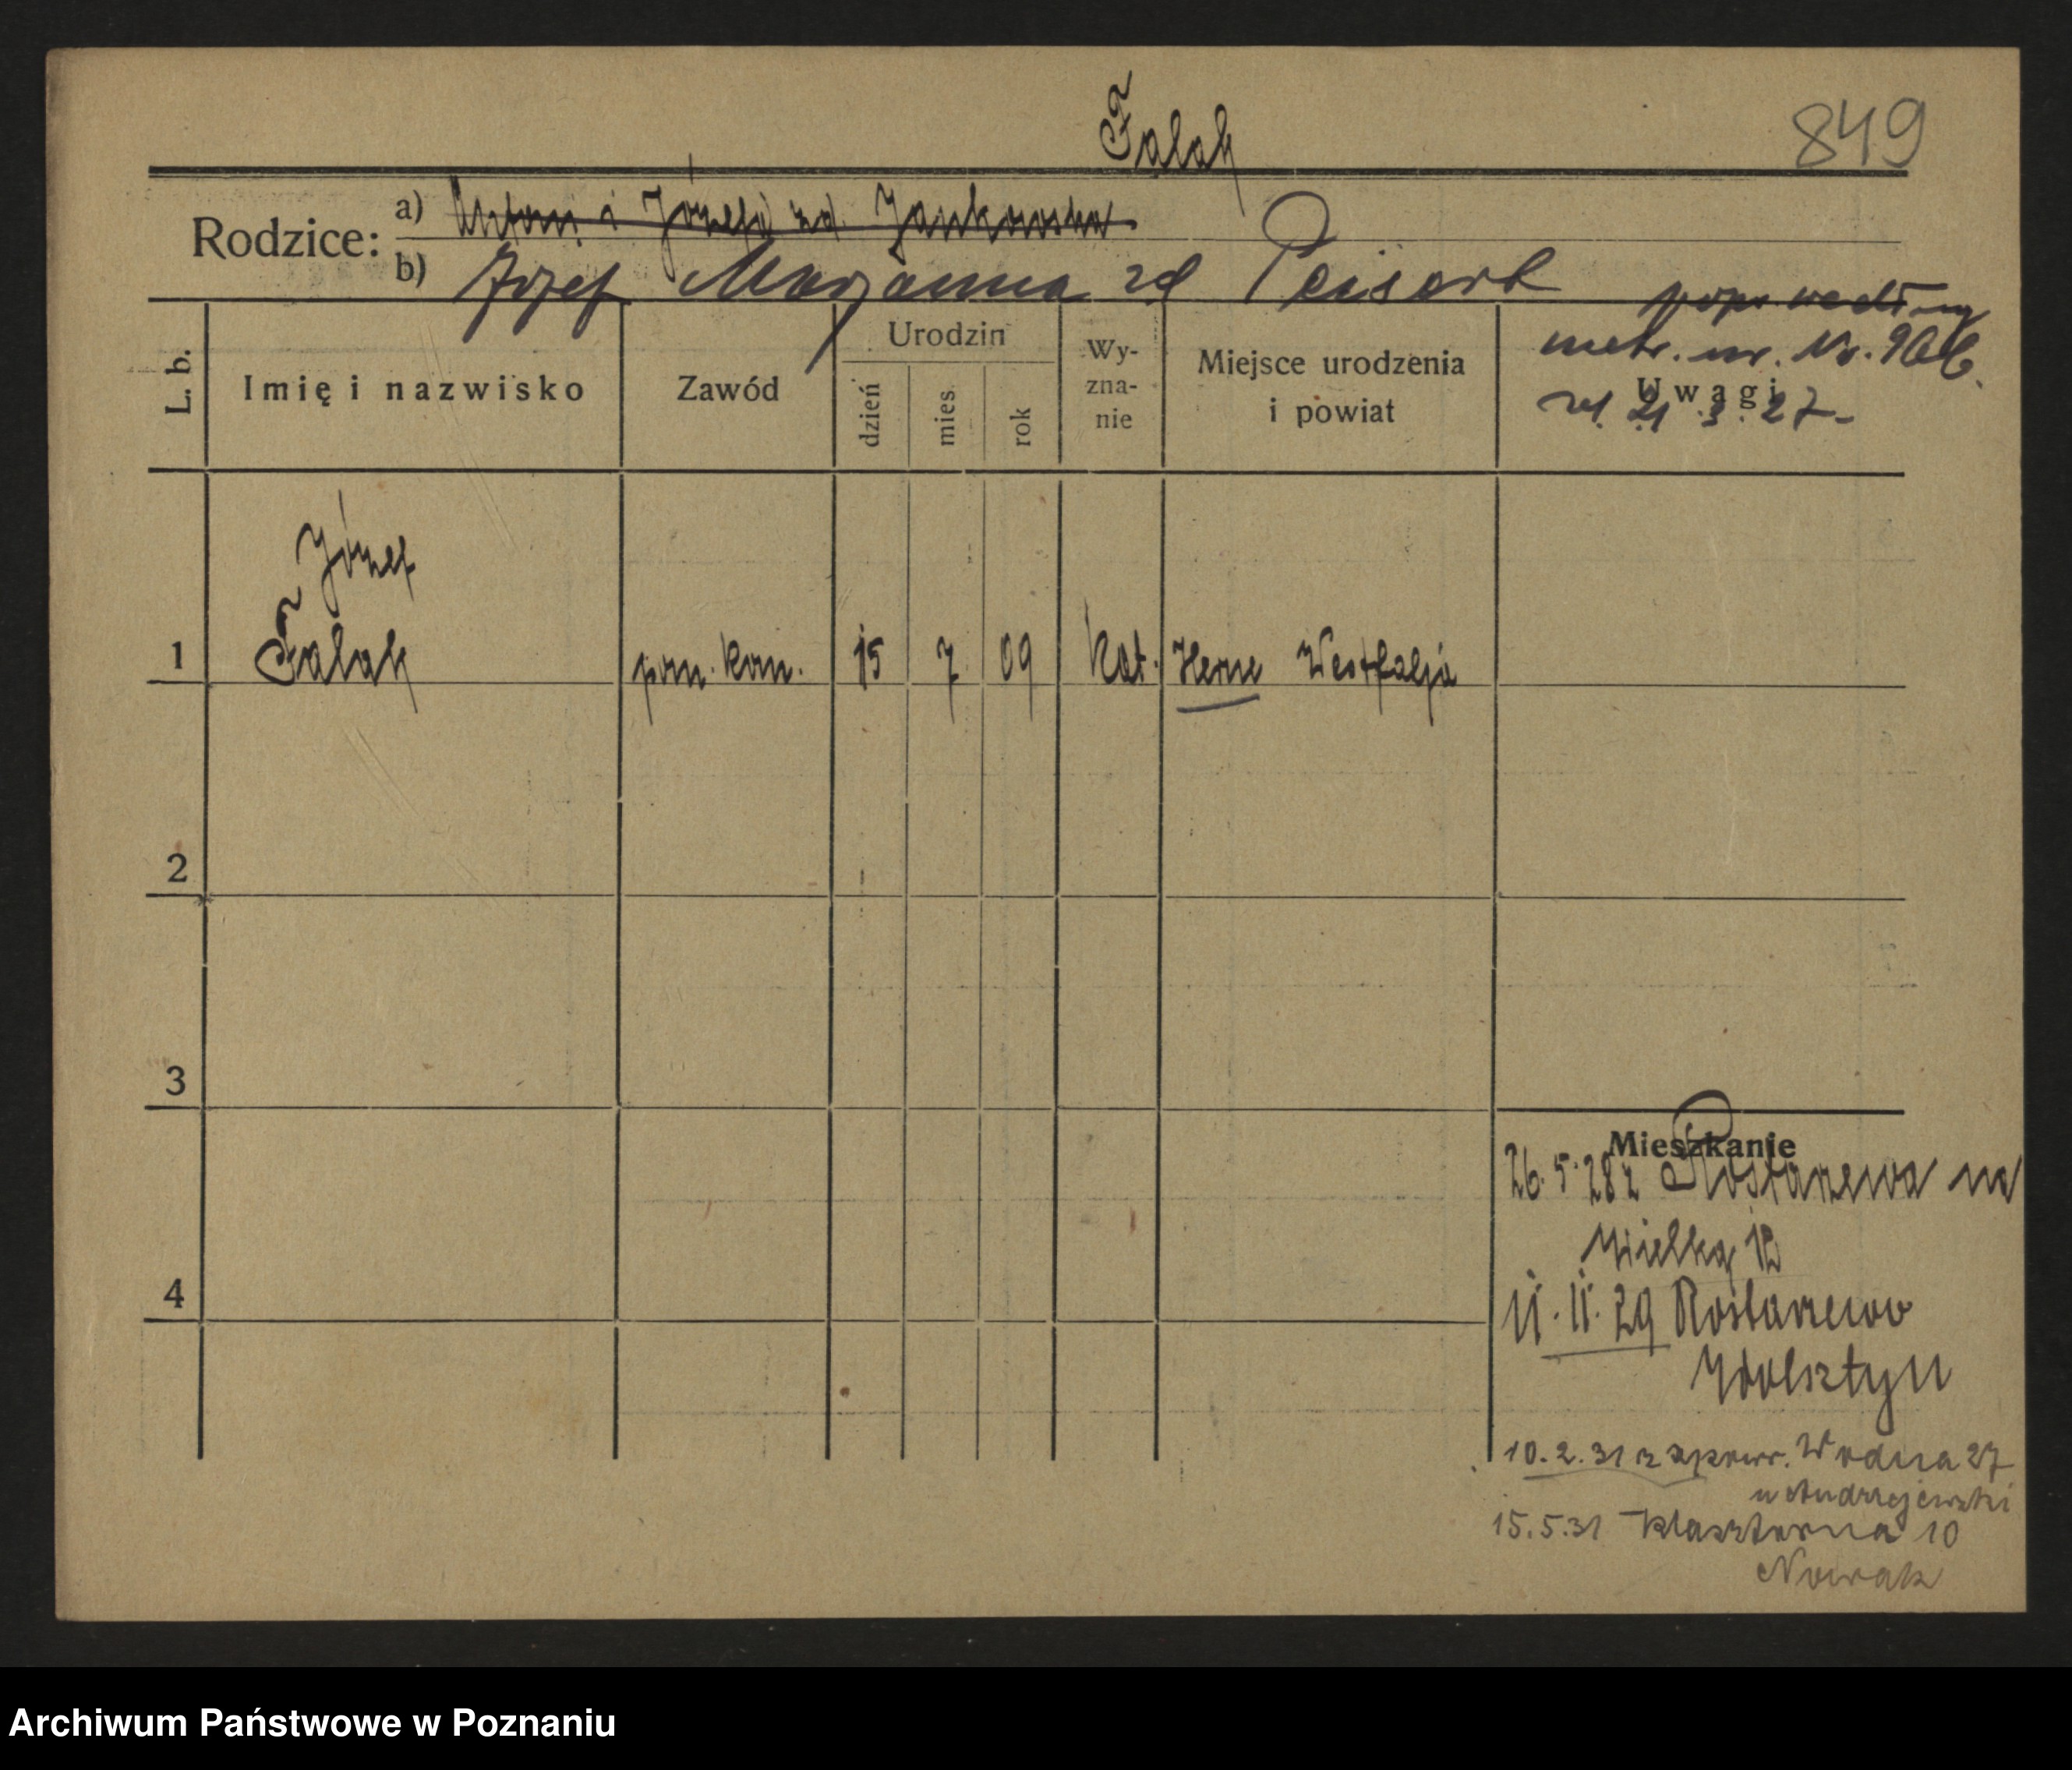 Falak
849
Rodzice:
a) Antoni i Józefa zd. Jankowska
b) Józef Marjanna zd Peisert
popr. według
metr. ur. Nr. 966.
zd. 21.3.27-
L. b.
Imię i nazwisko
Zawód
Urodzin
dzień
mies.
rok
Wy-
zna-
nie
Miejsce urodzenia
i powiat
Uwagi
Józef
1 Falak pom. kow. 15 7 09 kat. Herne Westfalja
2
3
4
Mieszkanie
26.5.28 z Rostarzewa na
Wielką 12
11.11.29 Rostarzewo
Wolsztyn
10.2.31 z zpowr. Wodna 27
u Andrzejewski
15.5.31 Klasztorna 10
Nowak
Archiwum Państwowe w Poznaniu